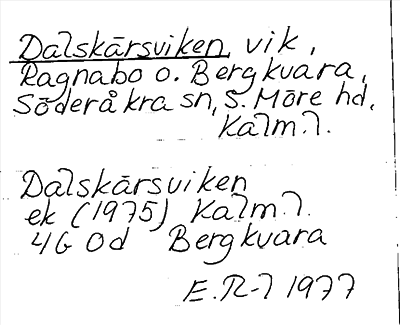 Dalskärsviken, vik,
Ragnabo o. Bergkvara,
Söderåkra sn, S. Möre hd,
Kalm. l.
Dalskärsviken
ek (1975) Kalm. l.
4G 0d Bergkvara
E. R-l 1977